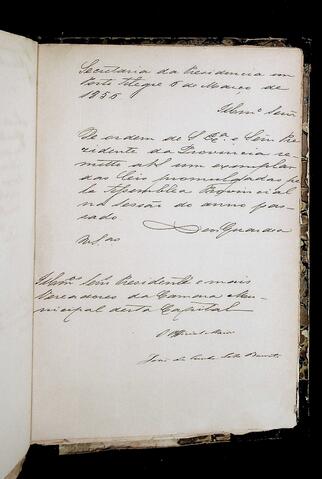 Secretaria da Presidencia em
Porto Alegre 6 de Março de
1856
Illmo Senr
De ordem de S. Exa o Senr Pre
zidente da Provincia re
metto a V. S. um exemplar
das Leis promulgadas pe
la Assembléa Provincial
na sessão do anno pas
sado Deos Guarde a
V. S. as
Illmos Senrs Presidente e mais
Vereadores da Camara Mu
nicipal desta Capital
O Official Maior
José da